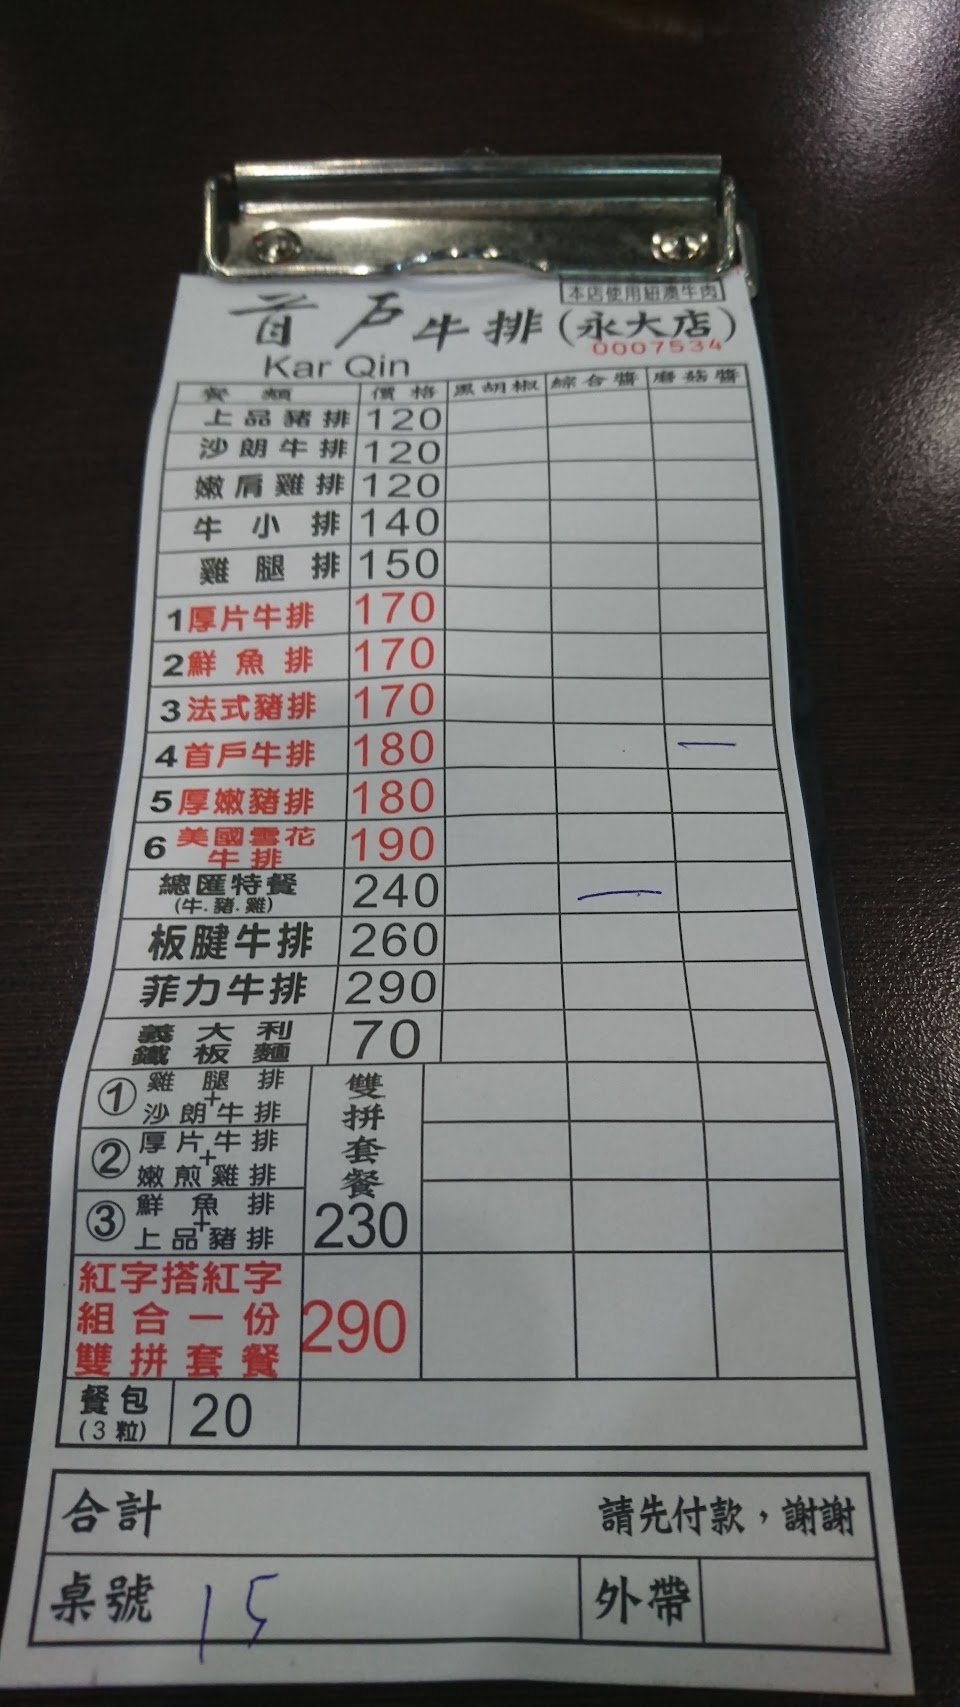 本店使用紐澳牛肉
首戶牛排(永大店)
0007534
Kar Qin
餐類 價格 黑胡椒 綜合醬 磨菇醬
上品豬排 120
沙朗牛排 120
嫩肩雞排 120
牛小排 140
雞腿排 150
1厚片牛排 170
2鮮魚排 170
3法式豬排 170
4首戶牛排 180 一
5厚嫩豬排 180
6美國雪花牛排 190
總匯特餐 240 一
(牛.豬.雞)
板腱牛排 260
菲力牛排 290
義大利
鐵板麵 70
①雞腿排
+
沙朗牛排
②厚片牛排
+
嫩煎雞排
③鮮魚排
+
上品豬排
雙拼套餐
230
紅字搭紅字
組合一份
雙拼套餐
290
餐包
(3粒)
20
合計 請先付款,謝謝
桌號 15 外帶